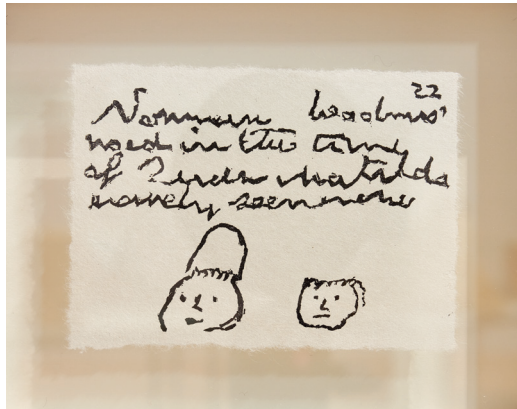 22
Norman headdress'
used in the time
of Queen Matilda
rarely seen now